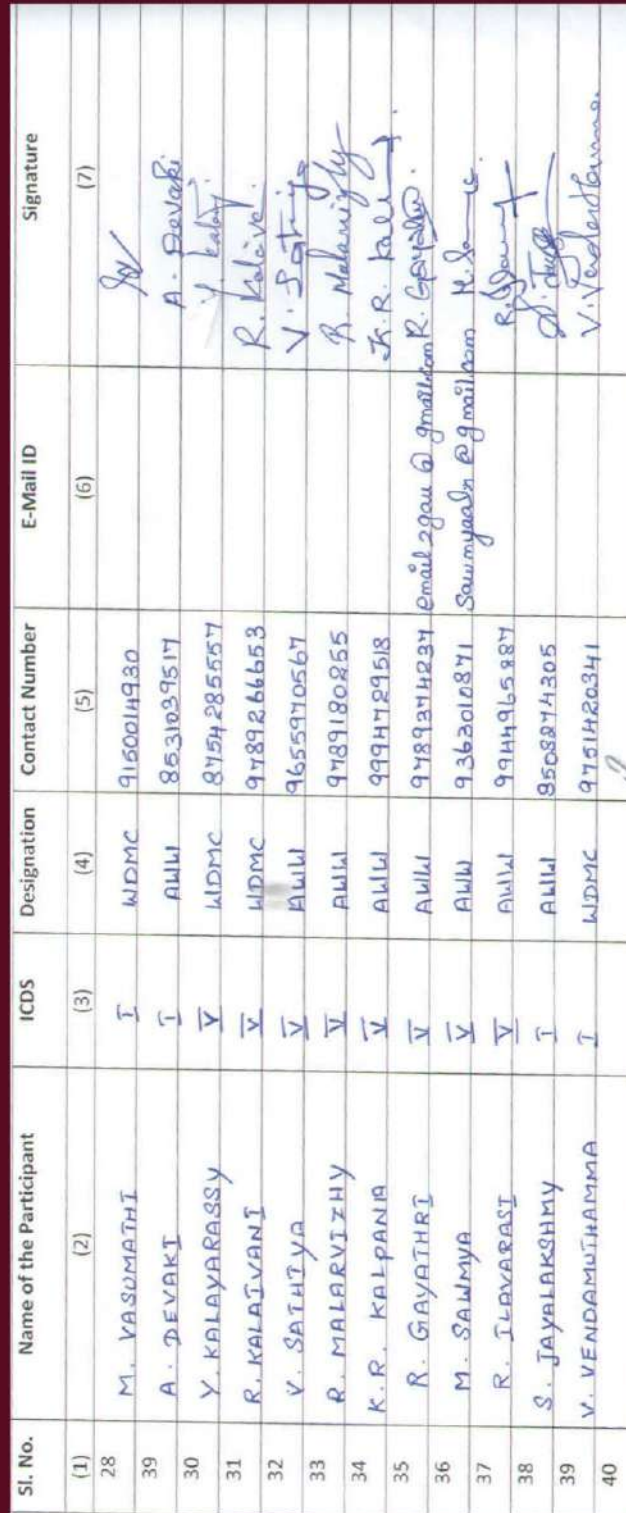 Sl. No. Name of the Participant ICDS Designation Contact Number E-Mail ID Signature
(1) (2) (3) (4) (5) (6) (7)
28 M. VASUMATHI I WDMC 9150014930
39 A. DEVAKI I AWW 8531039517 A. Devaki
30 Y. KALAYARASSY V WDMC 8754285557
31 R. KALAIVANI V WDMC 9789266653
32 V. SATHIYA V AWW 9655970567
33 R. MALARVIZHY V AWW 9789180255 R. Malarvizhy
34 K.R. KALPANA V AWW 9994729518
35 R. GAYATHRI V AWW 9789374237 email2gau@gmail.com
36 M. SAWMYA V AWW 9363010871
37 R. ILAVARASI V AWW 9944965887
38 S. JAYALAKSHMY I AWW 9508274305
39 V. VENDAMUTHAMMA I WDMC 9751420341
40